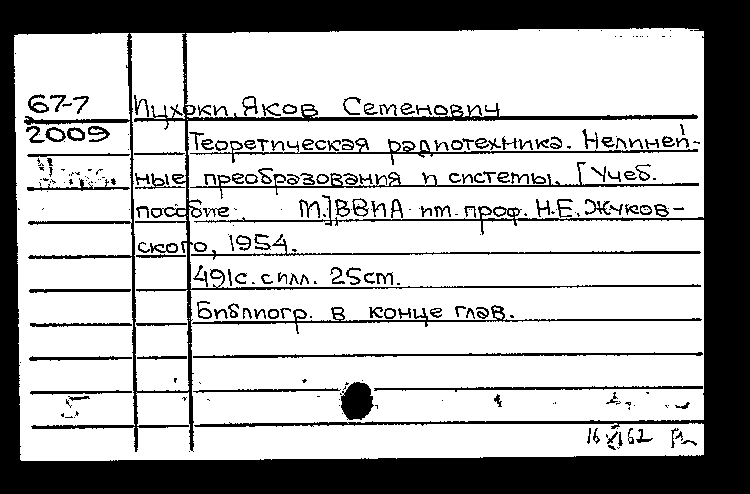 67-7 Ицхоки, Яков Семенович
2009 Теоретическая радиотехника. Нелиней-
ные преобразования и системы. [Учеб.
пособие. М.] ВВИА им. проф. Н.Е. Жуков-
ского, 1954.
491с. с илл. 25см.
Библиогр. в конце глав.
5
16 XI 62